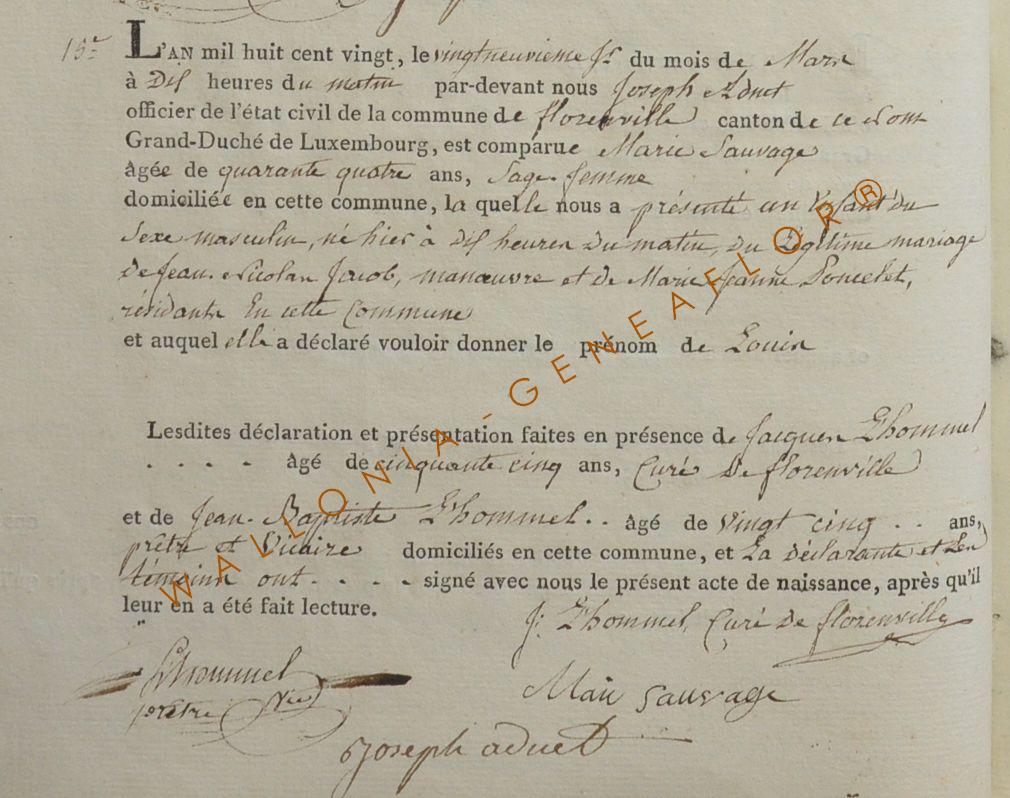 15e
L'AN mil huit cent vingt, le vingtneuvieme Jr du mois de Mars
à Dix heures du matin par-devant nous Joseph Adnet
officier de l'état civil de la commune de florenville canton de ce nom
Grand-Duché de Luxembourg, est comparue Marie Sauvage
âgée de quarante quatre ans, Sage-femme
domiciliée en cette commune, la quelle nous a présenté un Enfant du
Sexe masculin, né hier à Dix heures Du matin, du Légitime mariage
de Jean-Nicolas Jacob, manœuvre et de Marie Jeanne Poncelet,
résidants En cette Commune
et auquel elle a déclaré vouloir donner le prénom de Louis
Lesdites déclaration et présentation faites en présence de Jacques Lhommel
. . . . âgé de cinquante cinq ans, Curé De florenville
et de Jean-Baptiste Lhommel . . âgé de Vingt cinq . . ans,
prêtre et Vicaire domiciliés en cette commune, et La déclarante et Les
témoins ont . . . . signé avec nous le présent acte de naissance, après qu'il
leur en a été fait lecture.
J: Lhommel, Curé De florenville
Lhommel
prêtre Vic
Marie Sauvage
Joseph adnet
WALLONIA-GENEAFLOR®